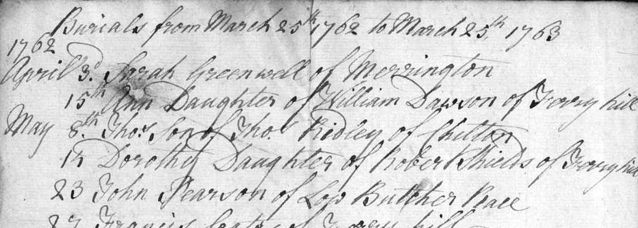 Burials from March 25th 1762 to March 25th 1763
1762
April 3d. Sarah Greenwell of Merrington
15th Ann Daughter of William Dawson of Ferry hill
May 8th. Thos. Son of Thos. Ridley of Chilton
12 Dorothy Daughter of Robert Shields of Ferry hill
23 John Pearson of Low Butcher Race
27 Francis of Ferry hill